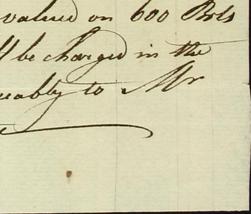 valued on 600 Bols
ll be charged in the
eably to Mr